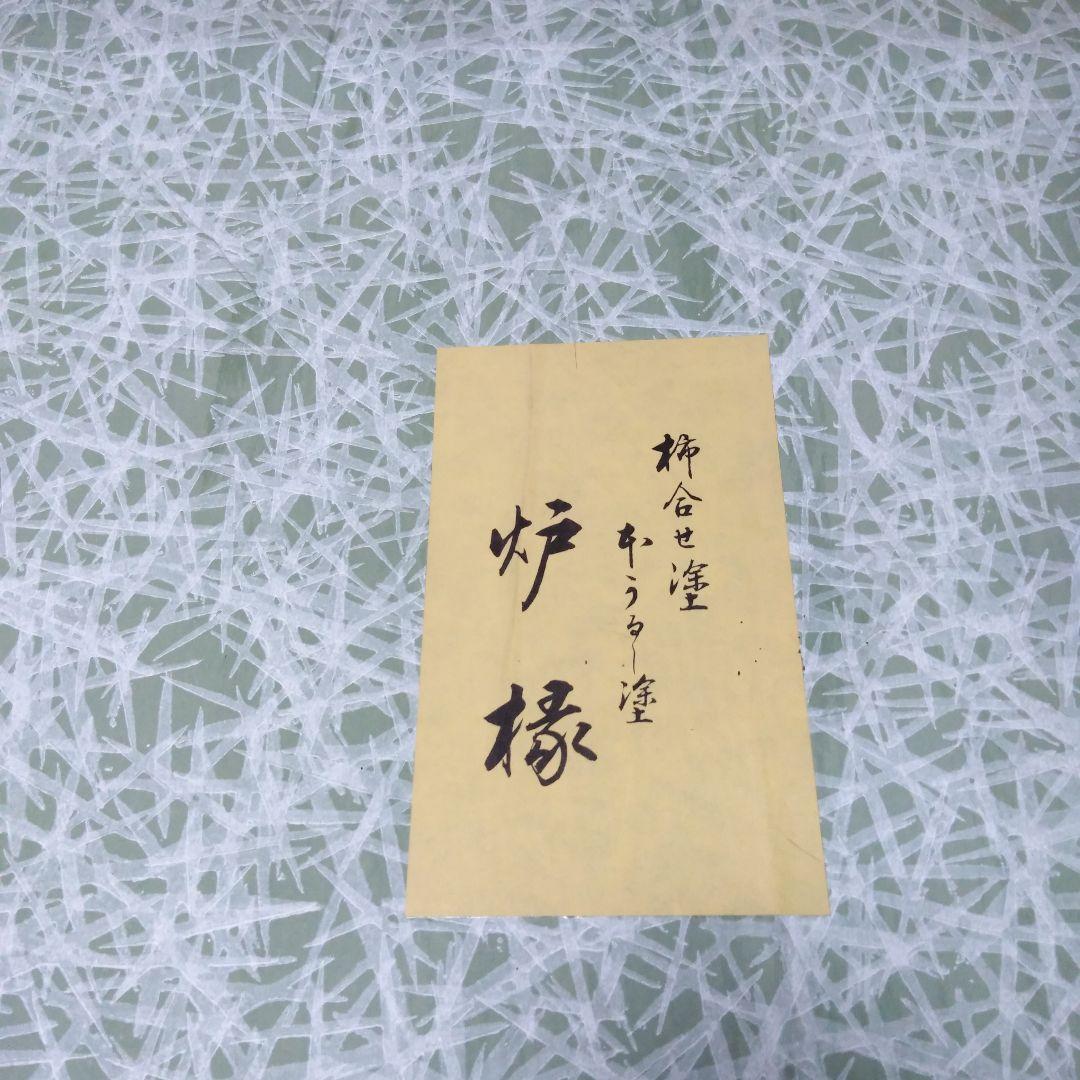 柿合せ塗
本うるし塗
炉椽